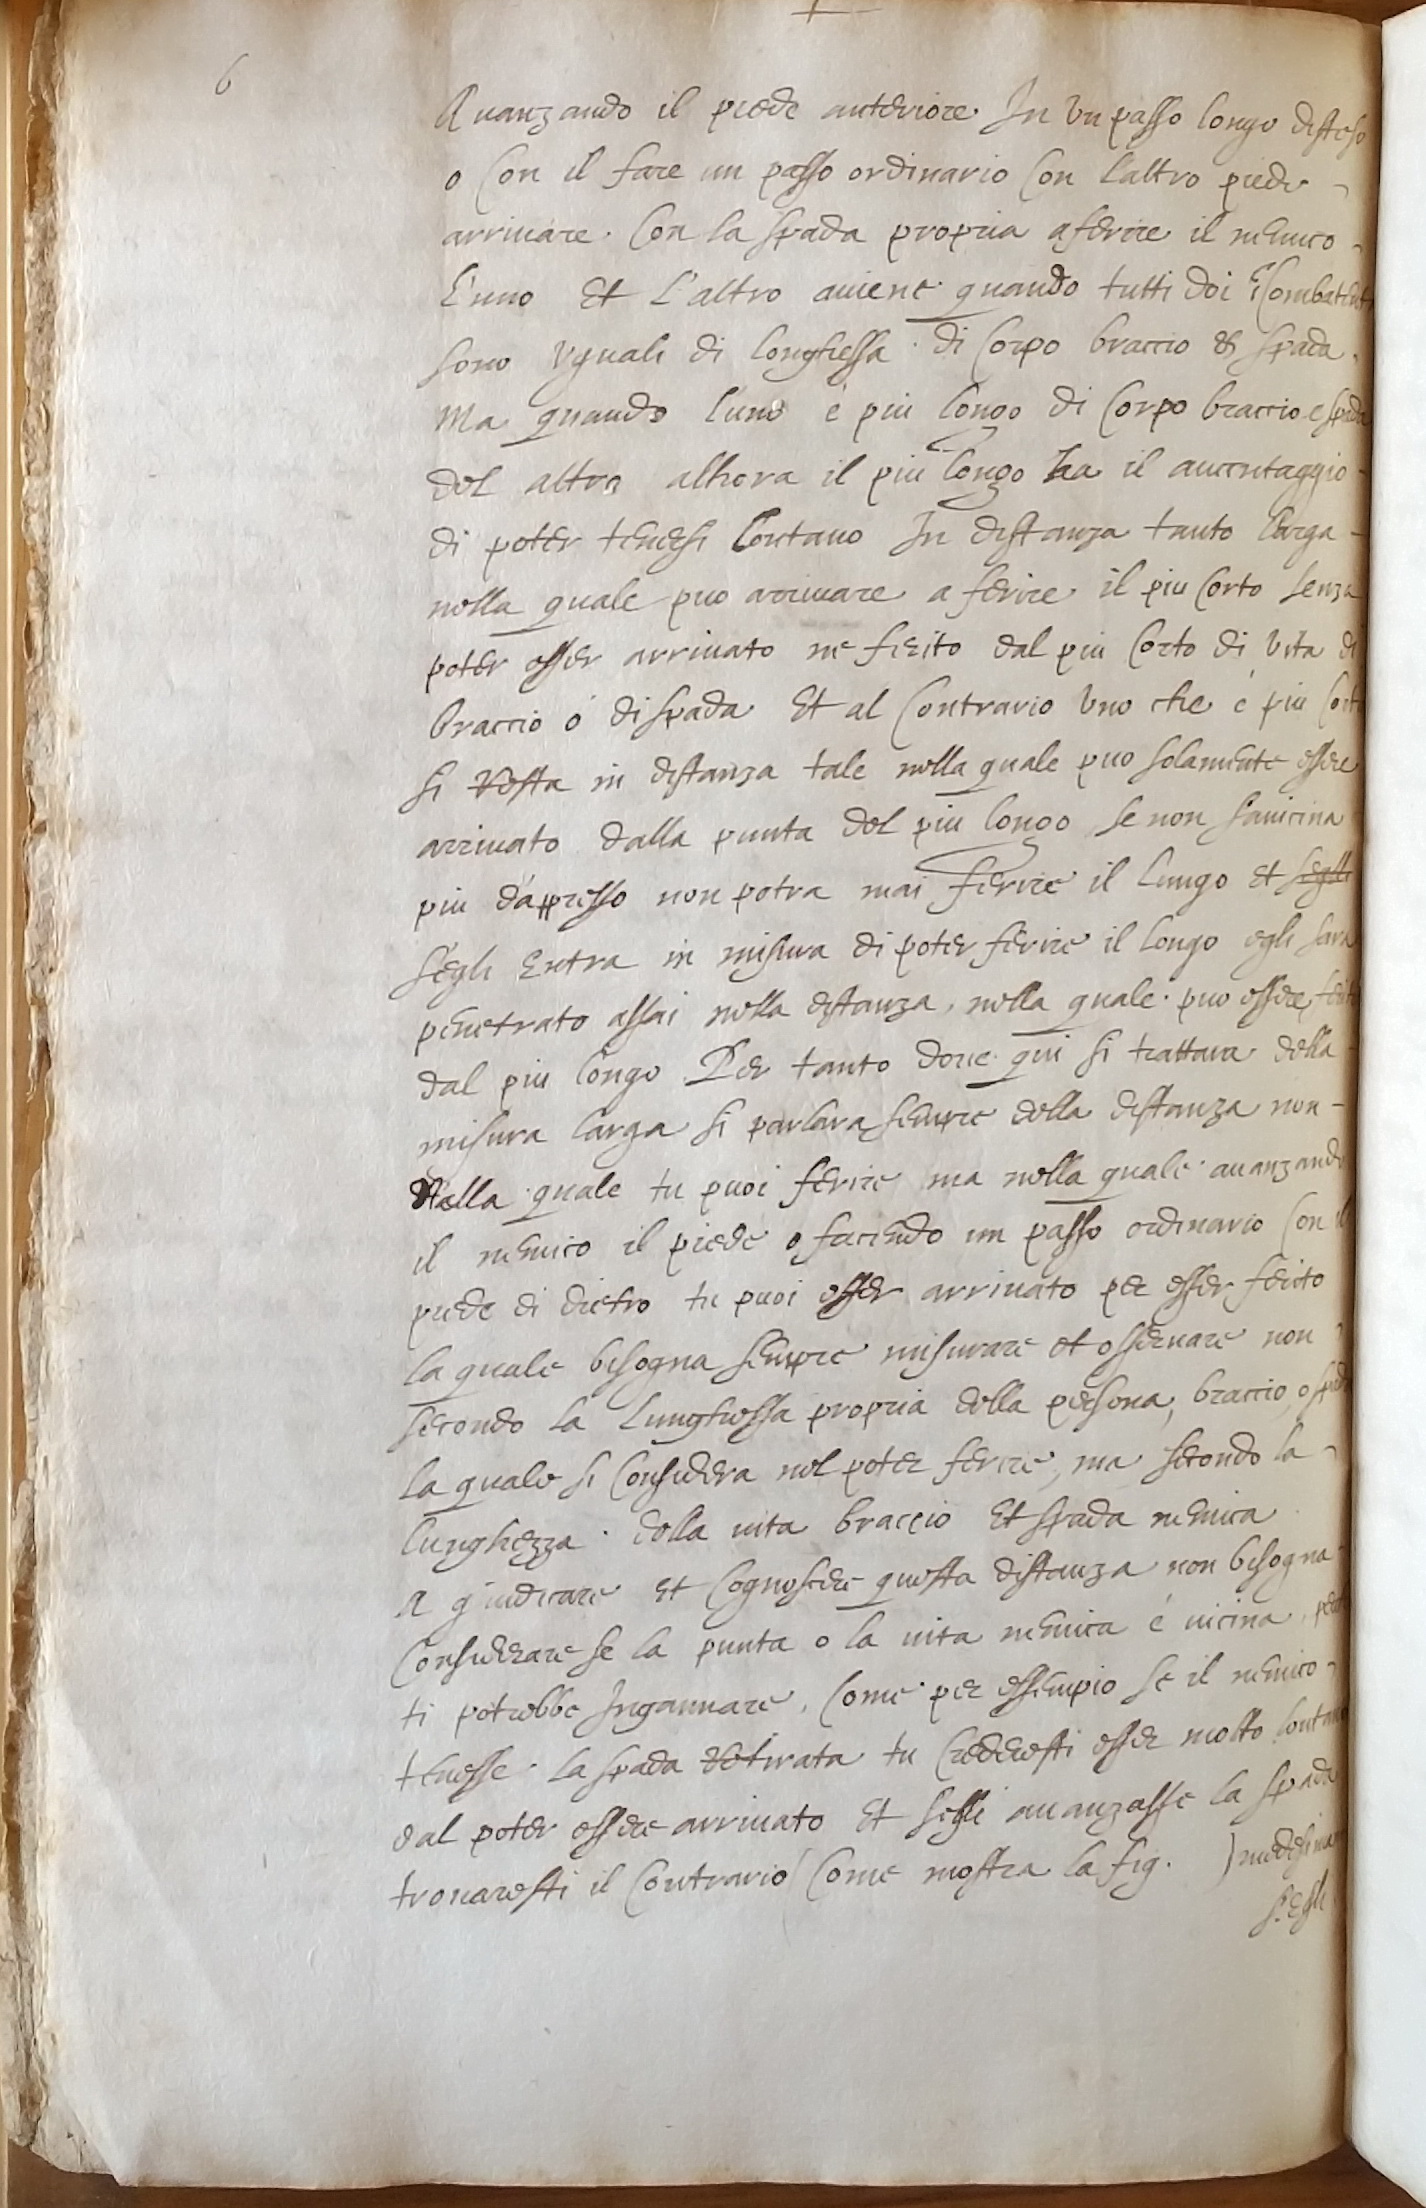 6
Auanzando il piede anteriore In Vn passo longo disteso
o Con il fare un passo ordinario Con L'altro piede
arriuare. Con la spada propria a ferire il nemico
L'uno et L'altro auiene quando tutti doi i Combatenti
sono Vguali di longhessa di Corpo braccio & spada.
Ma quando l'uno è piu longo di Corpo braccio e spada
del altro alhora il piu longo ha il auentaggio
di poter tenersi Lontano In distanza tanto Larga
nella quale puo arriuare a ferire il piu Corto senza
poter esser arriuato ne ferito dal piu Corto di Vita di
braccio ó di spada Et al Contrario Vno che é piu Corto
si resta in distanza tale nella quale puo solamente essere
arriuato dalla punta del piu longo, se non s'auicina
piu d'appresso non potra mai ferire il Lungo et segli
s'egli Entra in misura di poter ferire il longo egli sara
penetrato assai nella distanza, nella quale puo essere ferito
dal piu longo. Per tanto doue qui si trattara della
misura larga si parlara sempre della distanza non
dalla quale tu puoi ferire ma nella quale auanzando
il nemico il piede o facendo un passo ordinario Con il
piede di dietro tu puoi esser arriuato per esser ferito
la quale bisogna sempre misurare et osseruare non
secondo la Lunghessa propria della persona, braccio, o spada
la quale si Considera nel poter ferire, ma secondo la
lunghezza. della uita braccio Et spada nemica
A giudicare et Cognoscere questa distanza non bisogna
Considerare se la punta o la uita nemica é uicina,
ti potrebbe Ingannare, Come per essempio se il nemico
tenesse la spada retirata tu Crederesti esser molto lontano
dal poter essere arriuato Et s'egli auanzasse la spada
trouaresti il Contrario (Come mostra la fig. )
s'Egli